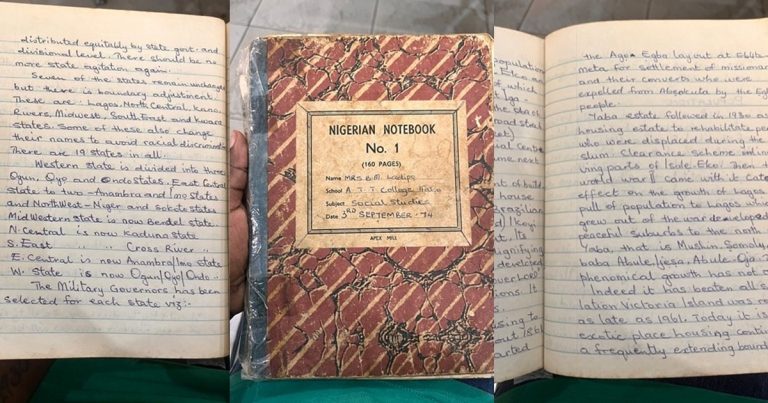 distributed equitably by state govt. and
divisional level. There should be no
more state agitation again.
Seven of the states remain unchanged
but there is boundary adjustment.
These are: Lagos, North Central, Kano
Rivers, Midwest, South East and Kwara
states. Some of these also change
their names to avoid racial discrimin
There are 19 states in all.
Western State is divided into three
Ogun, Oyo and Ondo States. East Central
State to two - Anambra and Imo States
and North West - Niger and Sokoto States
Mid Western state is now Bendel state.
N. Central is now Kaduna state.
S. East " " Cross River "
E. Central is now Anambra/Imo state
W. State is now Ogun/Oyo/Ondo.
The Military Governors has been
selected for each state viz:-
NIGERIAN NOTEBOOK
No. 1
(160 PAGES)
Name MRS E.M. Ladipo
School A.T.T. College
Subject Social Studies
Date 3RD SEPTEMBER '74
APEX MILL
population
of which
road stee
al Centre
ame next
t of build
house
Brazilian
d) Ikoyi
nt, Its
ignifying
developed
over looks
ions. It
using to
out 1861
arted
the Ago Egba layout at Ebute
meta for settlement of missionar
and their converts who were
expelled from Abeokuta by the Egb
people.
Yaba estate followed in 1930 as
housing estate to rehabilitate pe
who were displaced during the
slum clearance scheme
ving parts of Isale Eko. Then the
world war II came with it Cata
effect on the growth of Lagos
pull of population to Lagos whic
grew out of the war developed
peaceful suburbs to the north
Yaba, that is Mushin, Somolu,
baba Abule Ijesa, Abule-Oja.
phenomical growth has not
Indeed it has beaten all
lation Victoria Island was
as late as 1961. Today it is
exotic place housing contin
a frequently extending bound